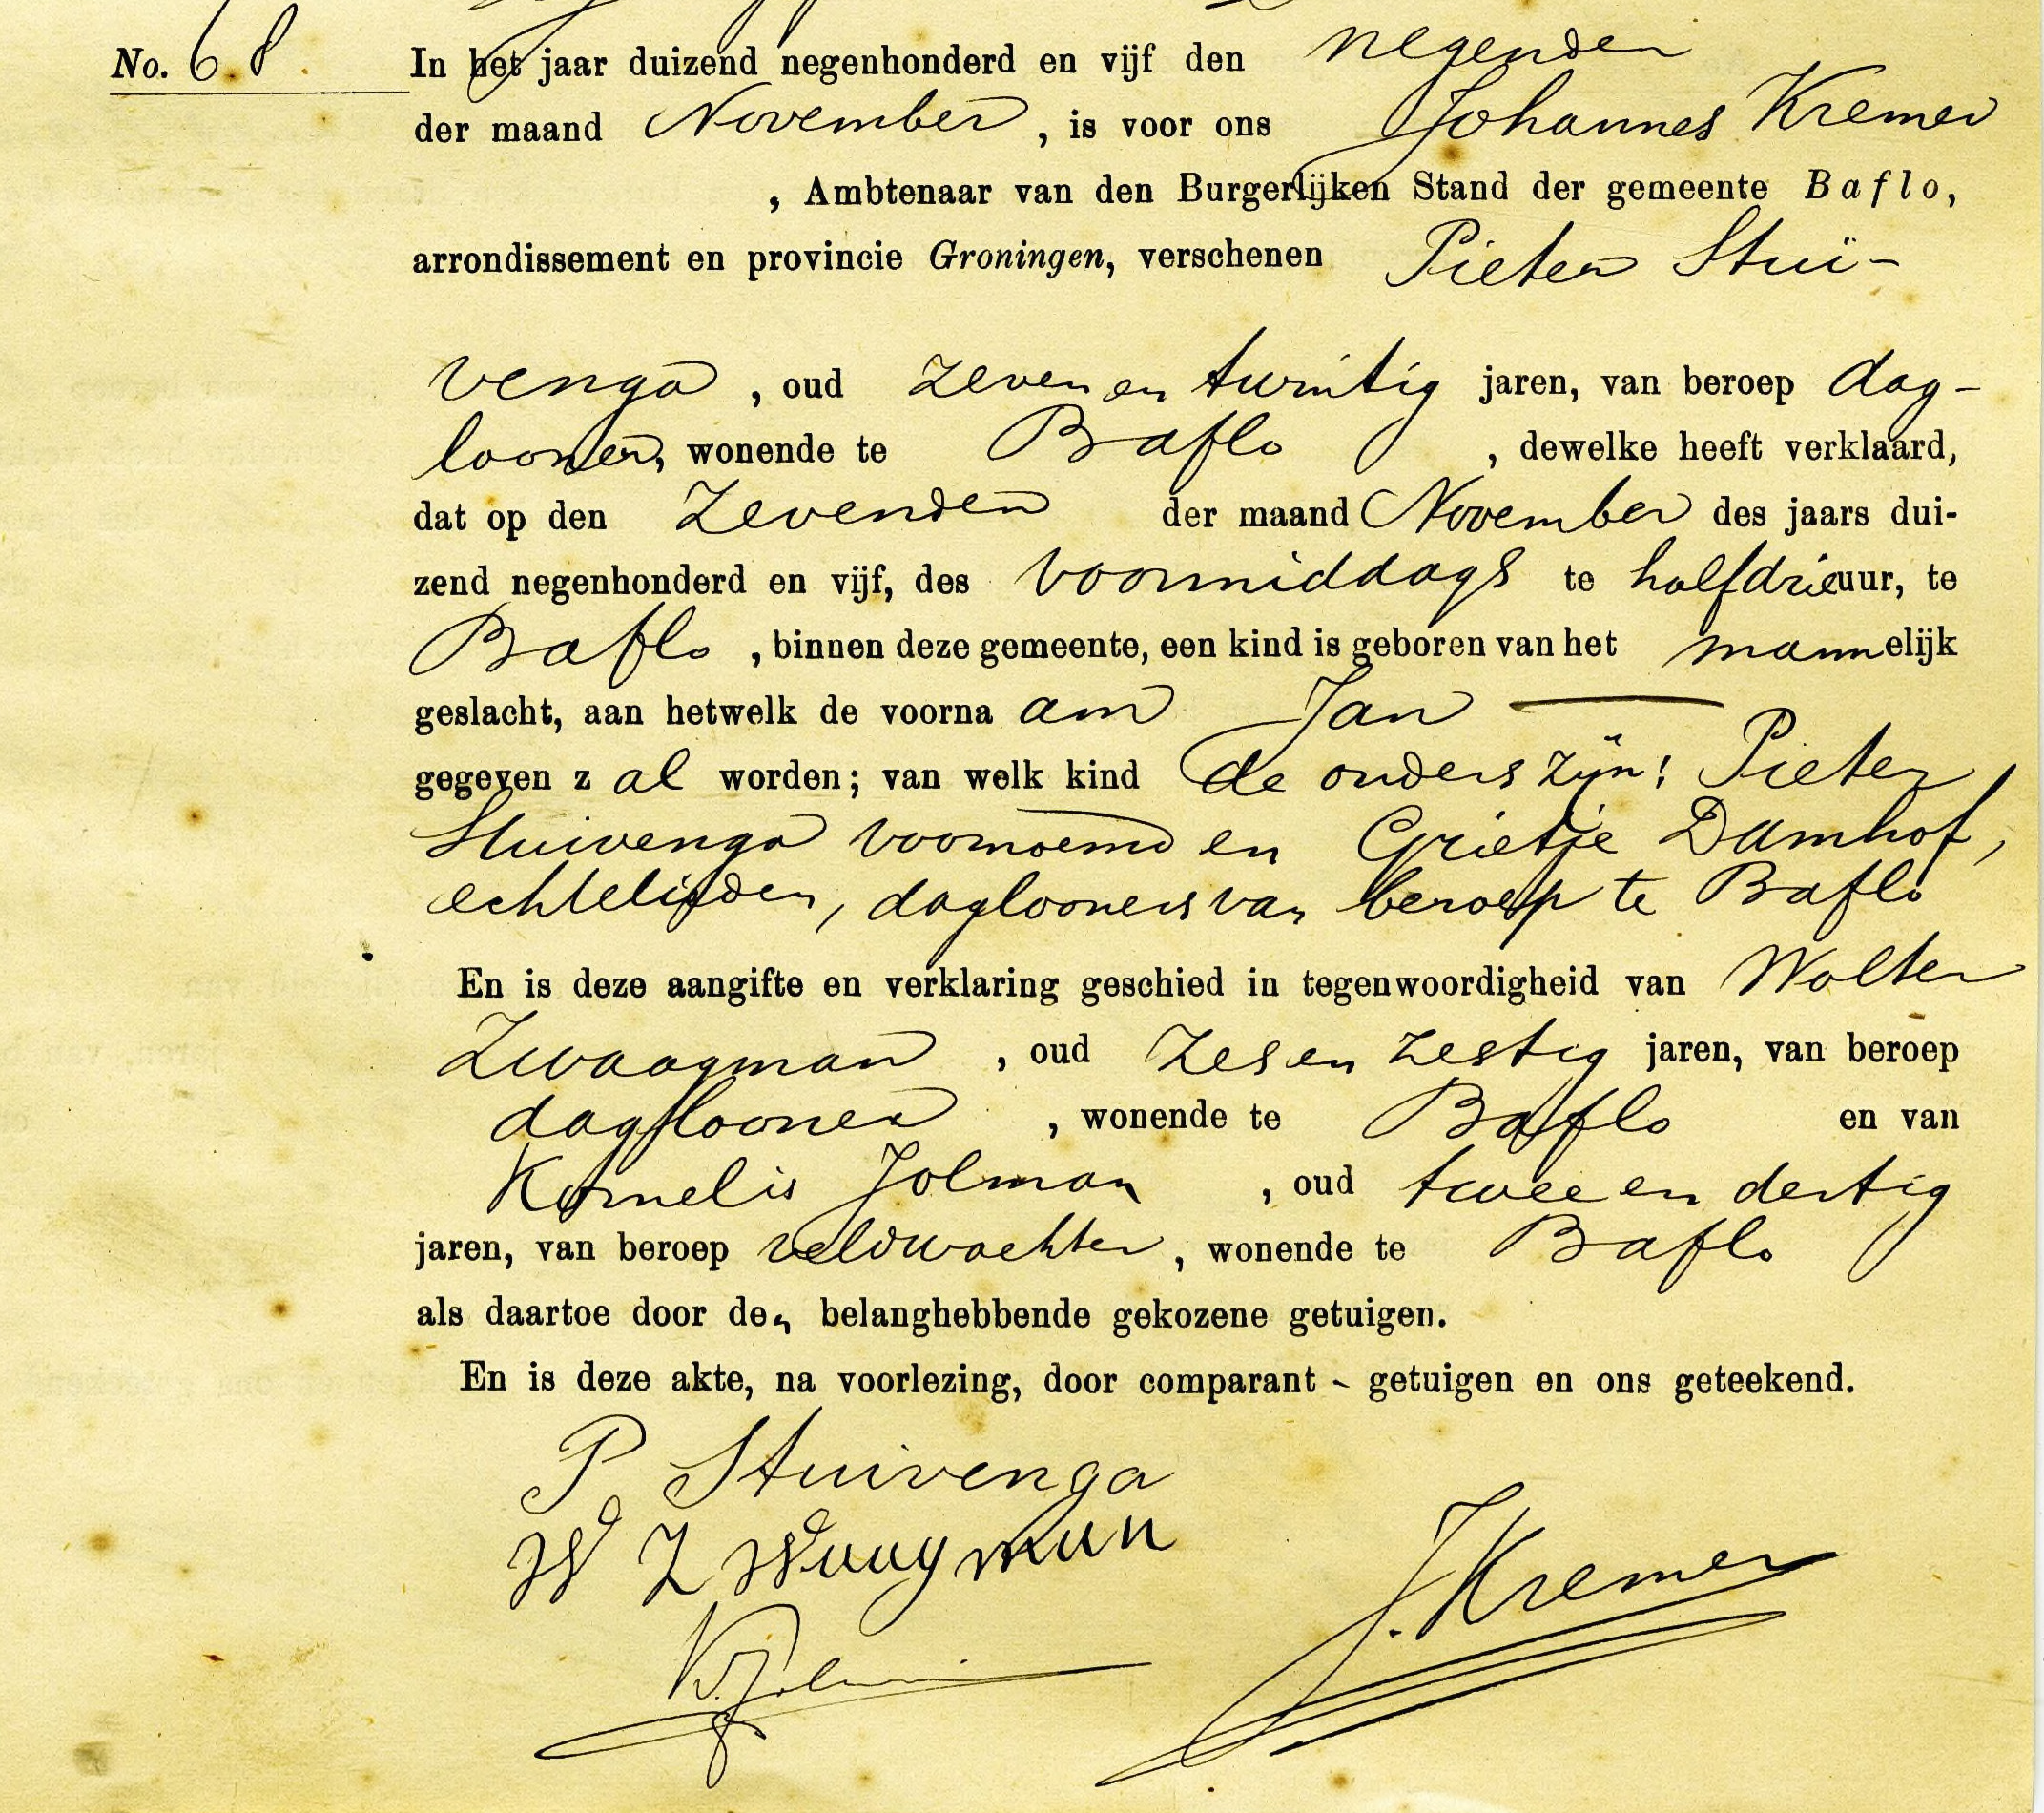 No. 68. In het jaar duizend negenhonderd en vijf den negenden
der maand November, is voor ons Johannes Kremer
, Ambtenaar van den Burgerlijken Stand der gemeente Baflo,
arrondissement en provincie Groningen, verschenen Pieter Stui-
venga, oud zeven en twintig jaren, van beroep dag-
looner, wonende te Baflo, dewelke heeft verklaard,
dat op den Zevenden der maand November des jaars dui-
zend negenhonderd en vijf, des voormiddags te halfdrie uur, te
Baflo, binnen deze gemeente, een kind is geboren van het mannelijk
geslacht, aan hetwelk de voornaam Jan —
gegeven zal worden; van welk kind de ouders zijn: Pieter
Stuivenga voornoemd en Grietje Damhof,
echtelieden, daglooners van beroep te Baflo
En is deze aangifte en verklaring geschied in tegenwoordigheid van Wolter
Zwaagman, oud zes en zestig jaren, van beroep
daglooner, wonende te Baflo en van
Kornelis Jolman, oud twee en dertig
jaren, van beroep veldwachter, wonende te Baflo
als daartoe door den belanghebbende gekozene getuigen.
En is deze akte, na voorlezing, door comparant - getuigen en ons geteekend.
P Stuivenga
W Zwaagman
K. Jolman
J. Kremer